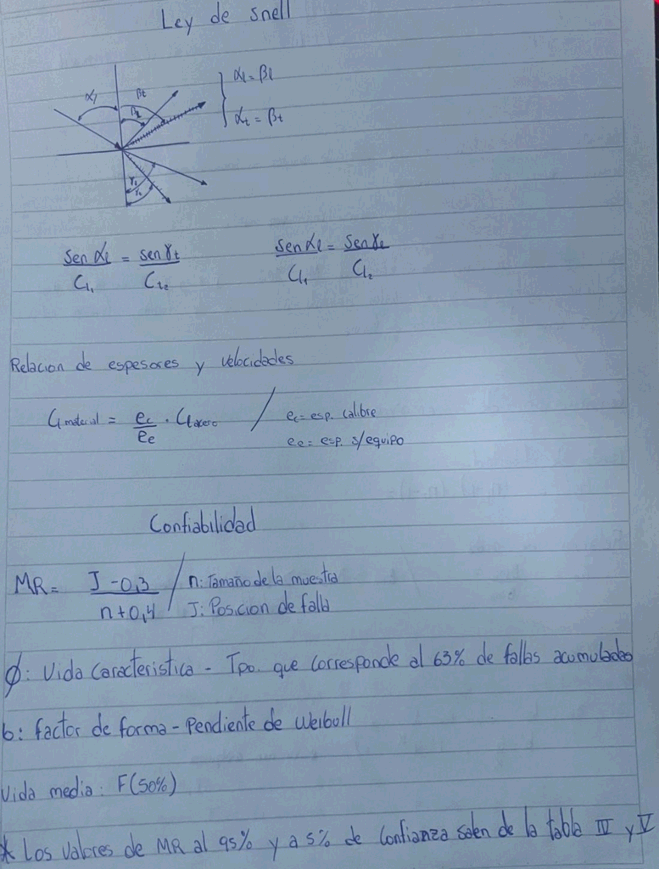 Ley de snell
αl βt
βl
αl = βl
αt = βt
γl
γt
sen αl = sen γt
Cl₁ Ct₂
sen αl = sen γl
Cl₁ Cl₂
Relacion de espesores y velocidades
Cl material = ec . Cl acero / ec = esp. calibre
ee
ee = esp. s/equipo
Confiabilidad
MR = J - 0,3 / n: Tamaño de la muestra
n + 0,4 J: Posicion de falla
ϕ: Vida caracteristica - Tpo. que corresponde al 63% de fallas acumuladas
b: factor de forma - Pendiente de Weibull
Vida media: F(50%)
* Los valores de MR al 95% y a 5% de confianza salen de la tabla IV y V